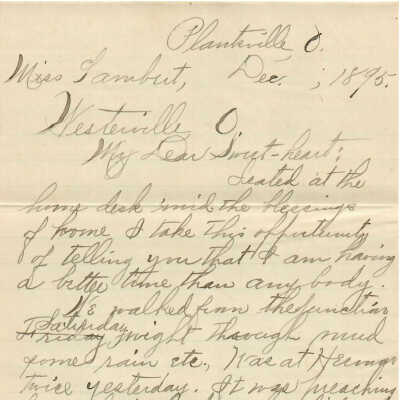 Plankville, O.
Miss Lambert, Dec. ; 1895.
Westerville, O.
My Dear Sweet-heart:
Seated at the
home desk 'mid the blessings
of home I take this opportunity
of telling you that I am having
a better time than any body.
We walked from the junction
Friday Saturday night through mud
some rain etc., Was at
twice yesterday. It was preaching